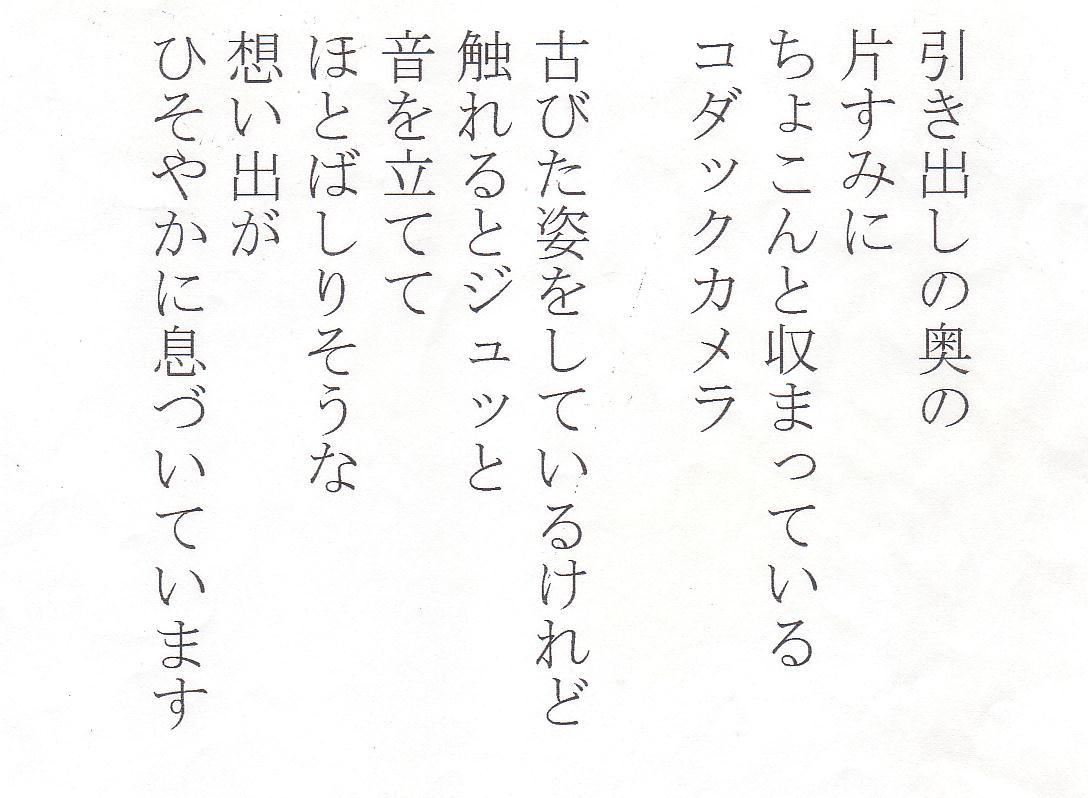 引き出しの奥の
片すみに
ちょこんと収まっている
コダックカメラ
古びた姿をしているけれど
触れるとジュッと
音を立てて
ほとばしりそうな
想い出が
ひそやかに息づいています